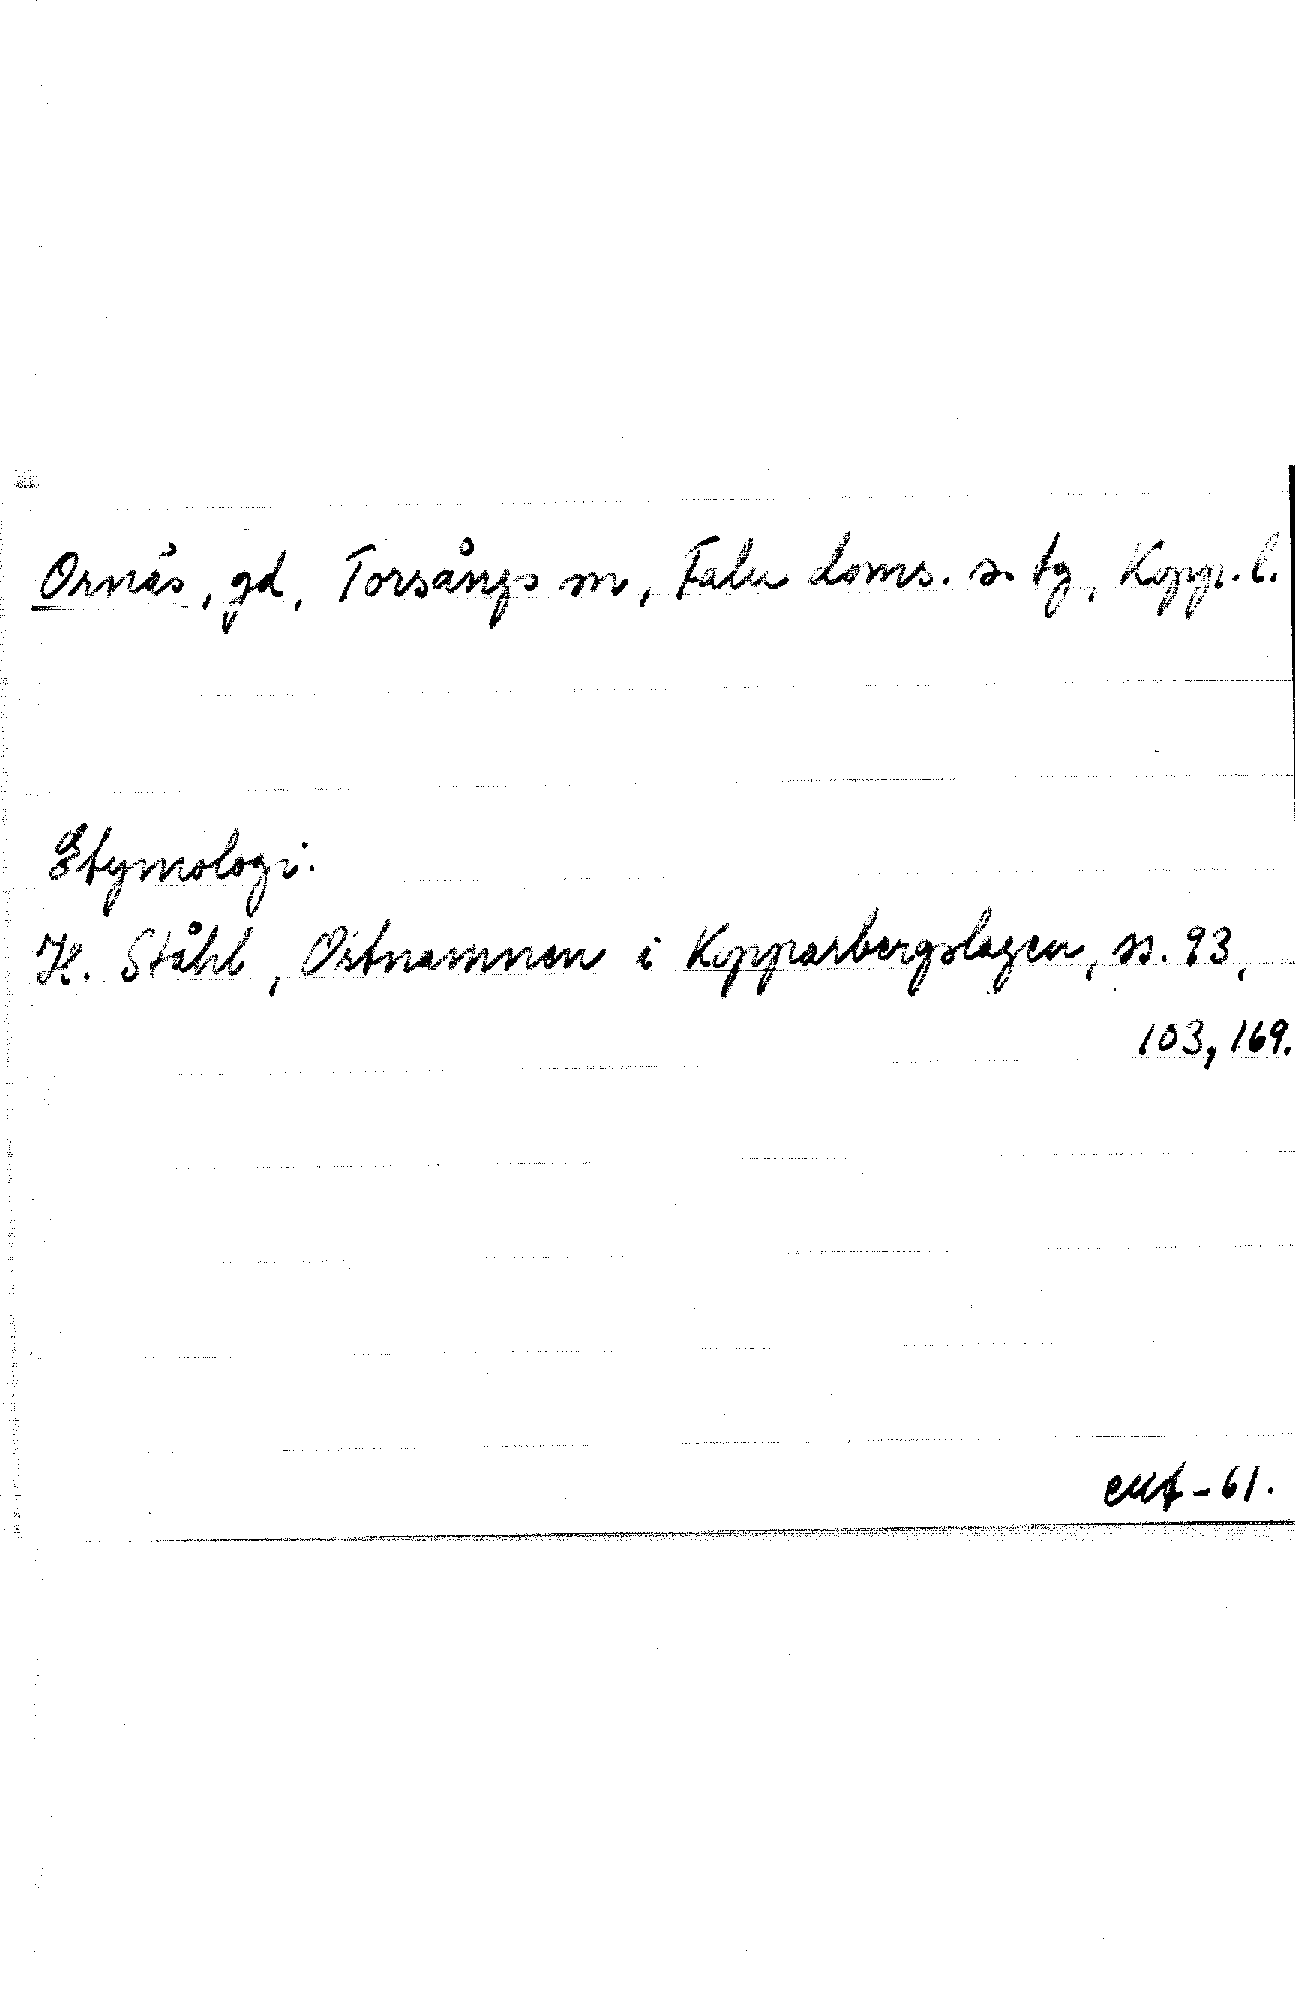 Ornäs, gd, Torsångs sn, Falu doms. s. tg, Kopp. l.
Etymologi:
H. Ståhl, Ortnamnen i Kopparbergslagen, ss. 93,
103, 169.
-61.